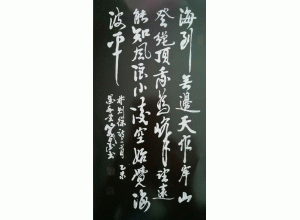 海到無邊天作岸山
登絕頂我為峰望遠
能知風浪小凌空始覺海
波平
林則徐詩一首 乙未